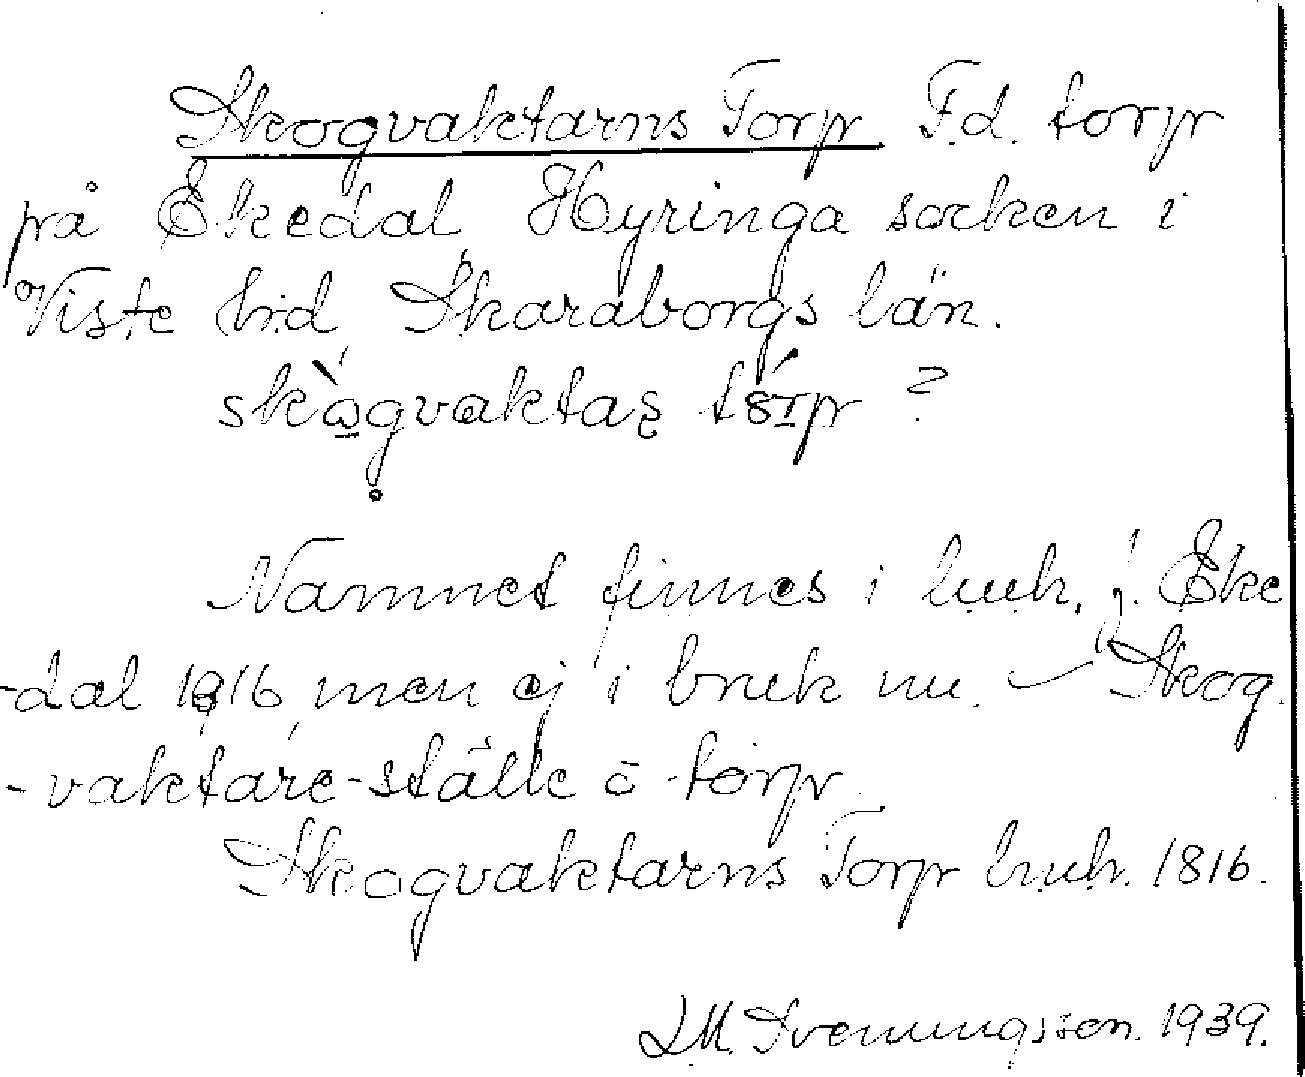 Skogvaktarns Torp F.d. torp
på Ekedal, Hyringa socken i
Viste h:d, Skaraborgs län.
skògvaktaṣ tórp ?
Namnet finnes i h.u.h. f. Eke
-dal 1816, men ej i bruk nu. – Skog-
-vaktare-ställe o -torp.
Skogvaktarns Torp h.u.h. 1816.
LM. Svenungsson. 1939.